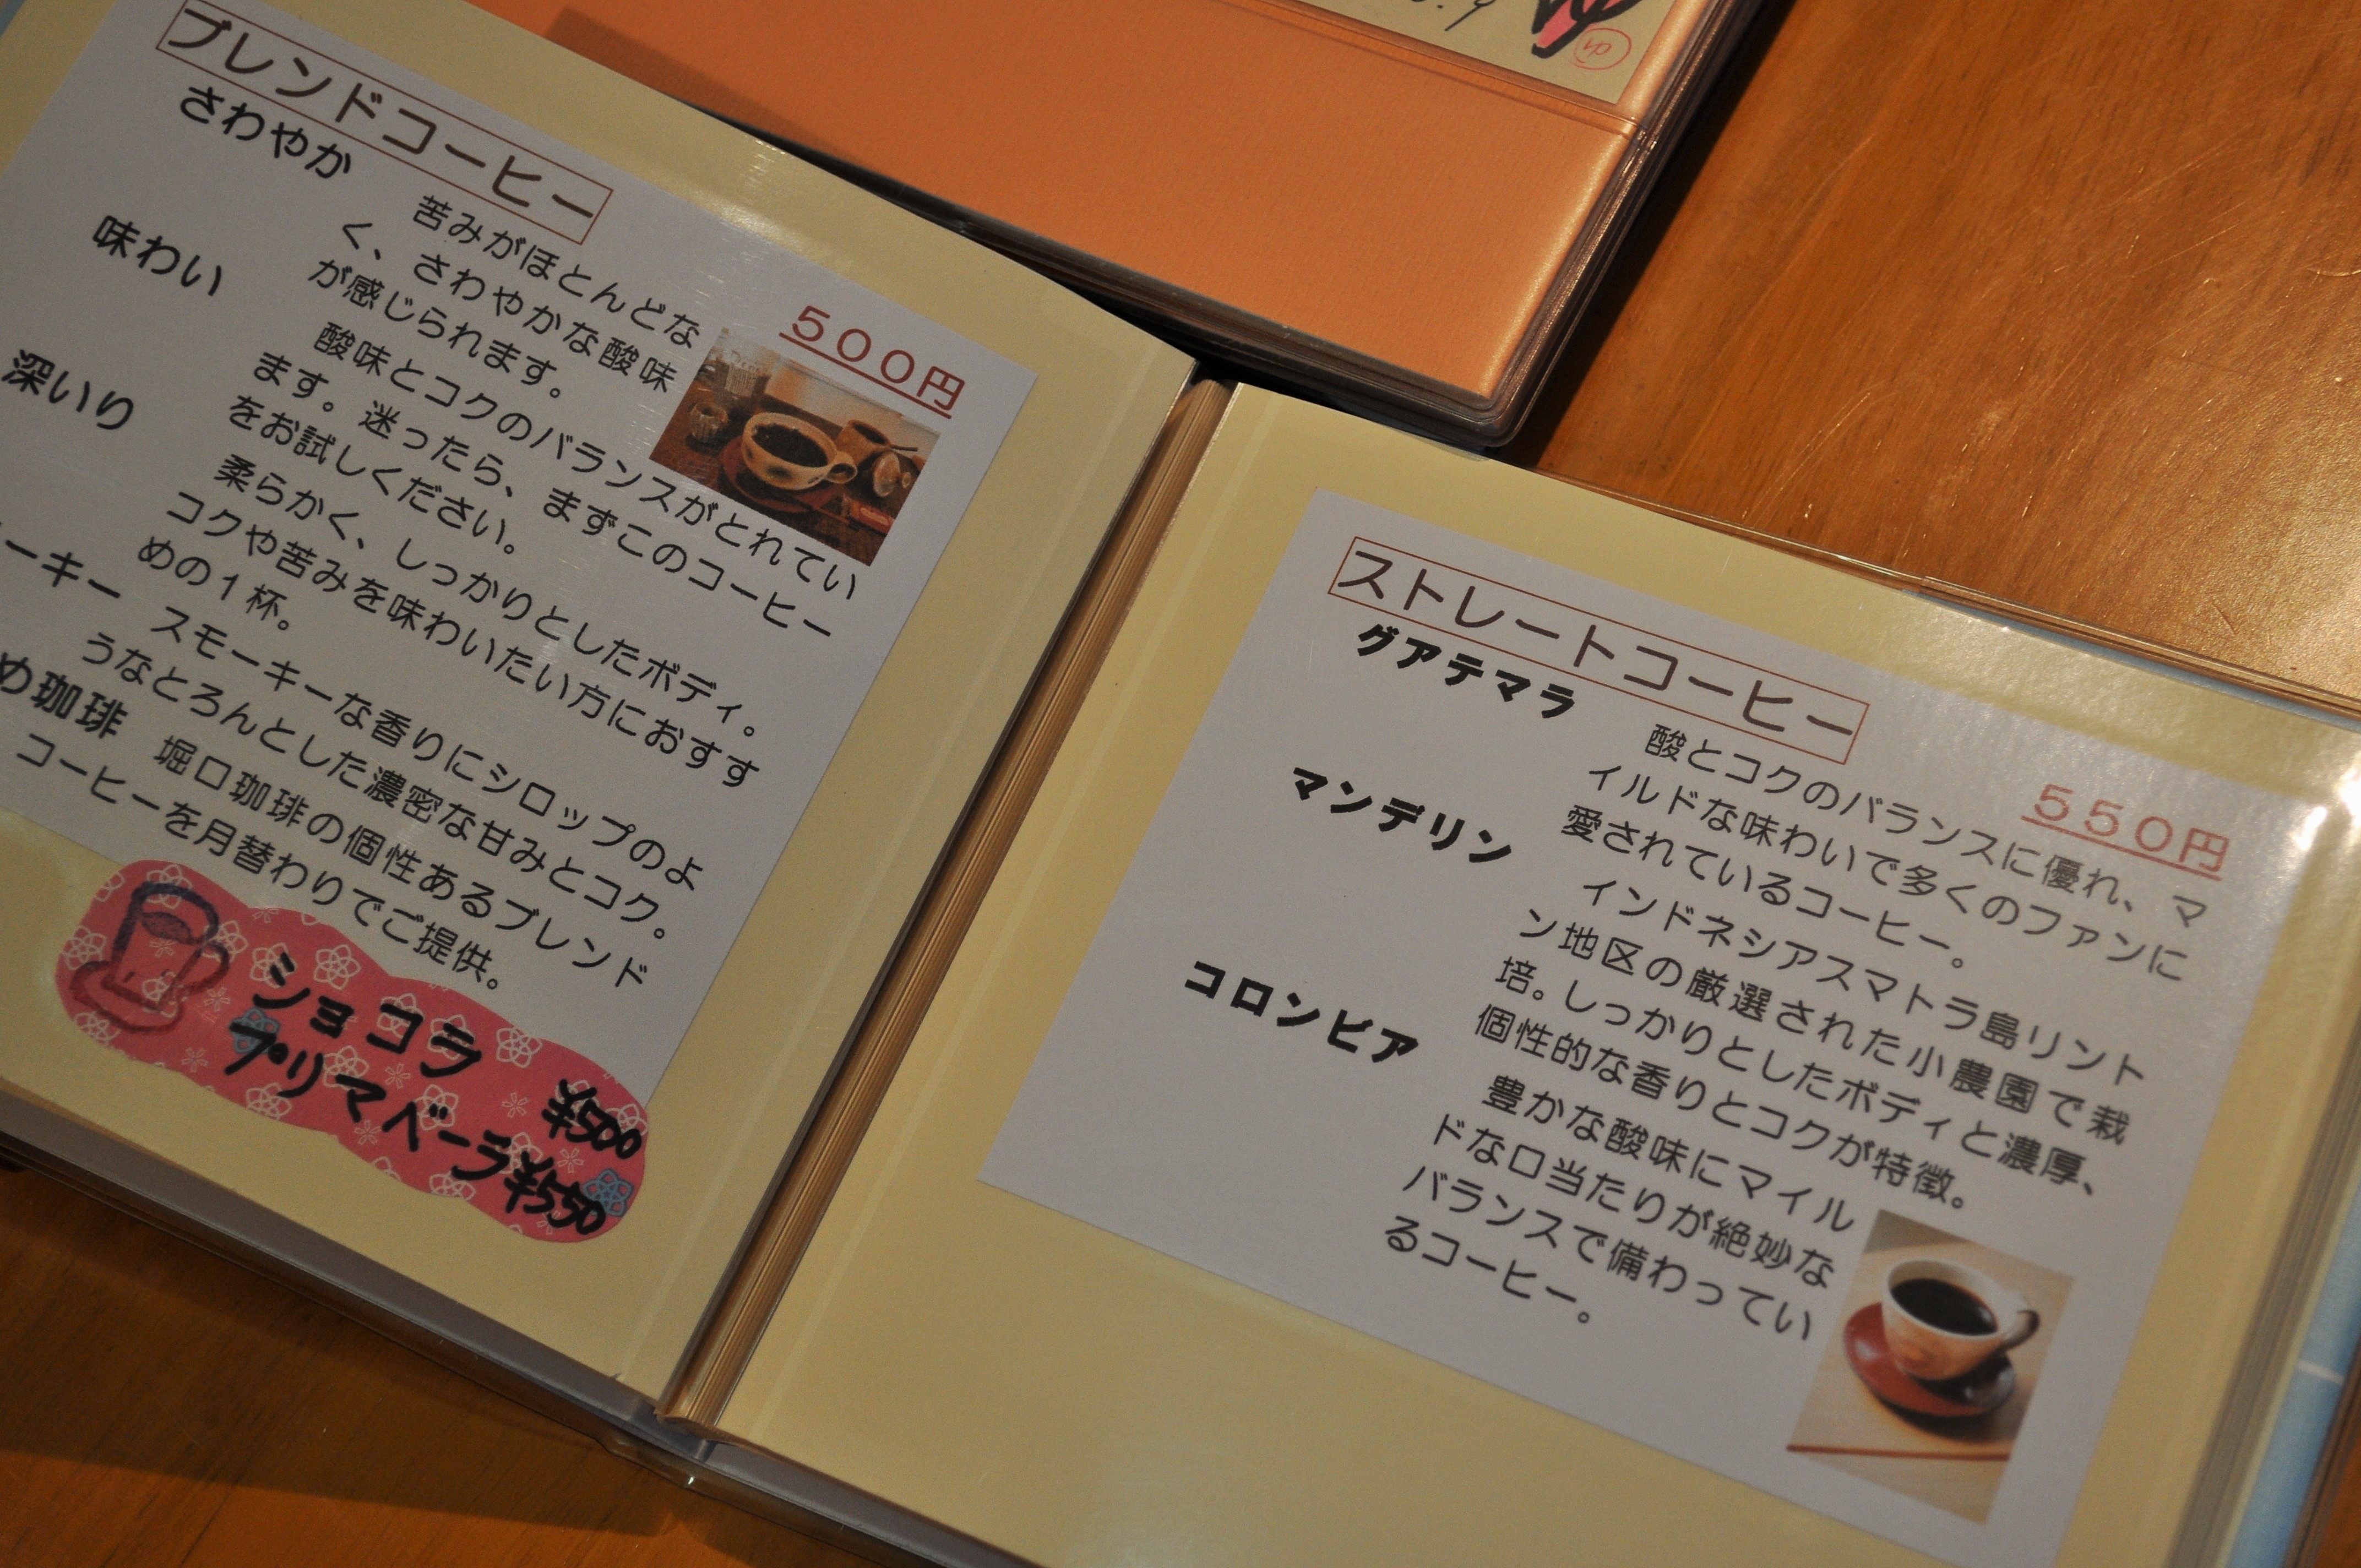 ブレンドコーヒー
５００円
さわやか
苦みがほとんどな
く、さわやかな酸味
が感じられます。
味わい
酸味とコクのバランスがとれてい
ます。迷ったら、まずこのコーヒー
をお試しください。
深いり
柔らかく、しっかりとしたボディ。
コクや苦みを味わいたい方におすす
めの１杯。
ーキー
スモーキーな香りにシロップのよ
うなとろんとした濃密な甘みとコク。
め珈琲
堀口珈琲の個性あるブレンド
コーヒーを月替わりでご提供。
ショコラ ¥500
プリマベーラ ¥550
ストレートコーヒー
５５０円
グアテマラ
酸とコクのバランスに優れ、マ
イルドな味わいで多くのファンに
愛されているコーヒー。
マンデリン
インドネシアスマトラ島リント
ン地区の厳選された小農園で栽
培。しっかりとしたボディと濃厚、
個性的な香りとコクが特徴。
コロンビア
豊かな酸味にマイル
ドな口当たりが絶妙な
バランスで備わってい
るコーヒー。